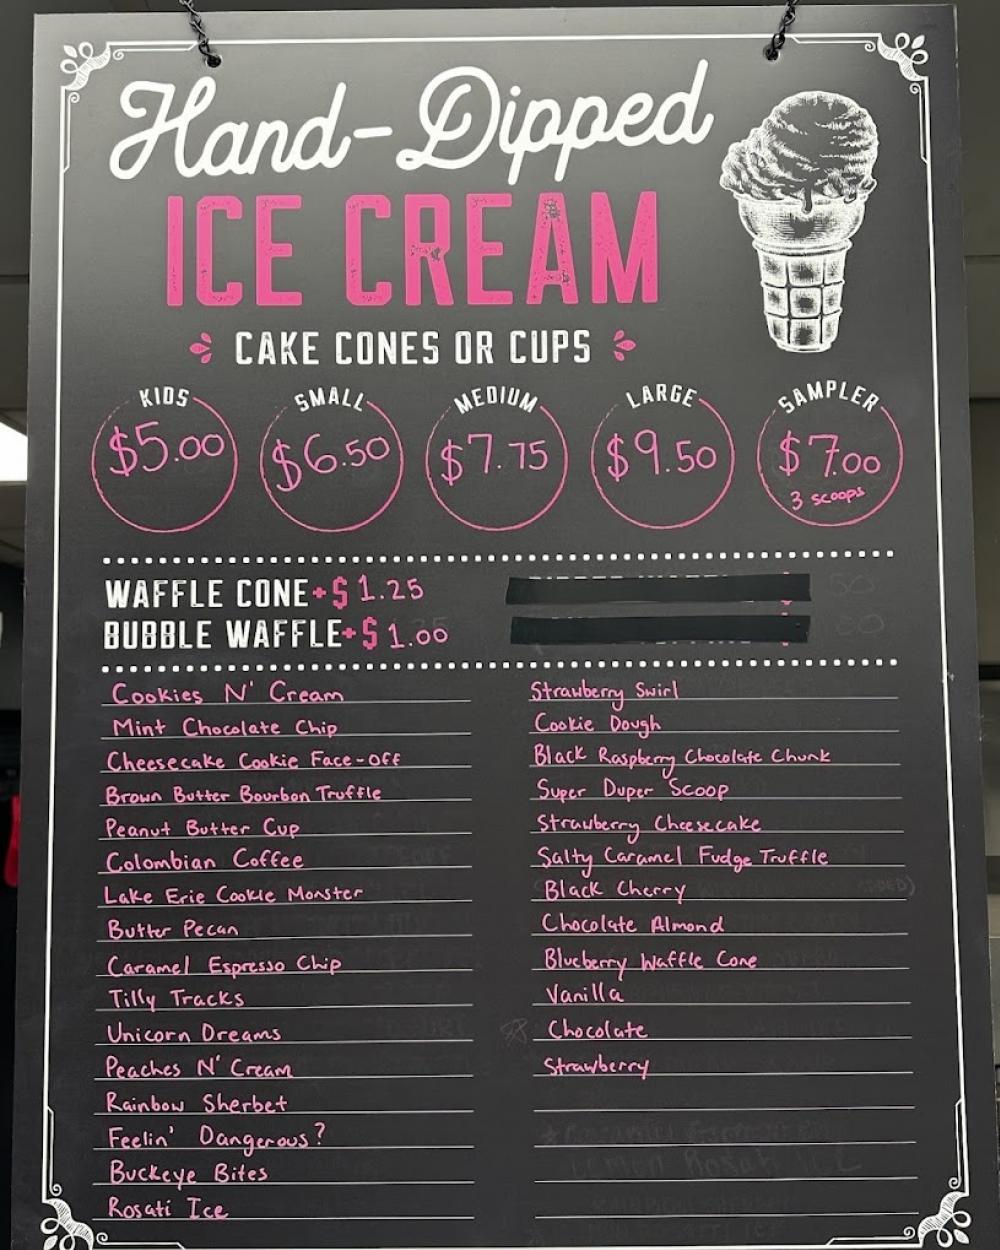 Hand-Dipped
ICE CREAM
CAKE CONES OR CUPS
KIDS
$5.00
SMALL
$6.50
MEDIUM
$7.75
LARGE
$9.50
SAMPLER
$7.00
3 scoops
WAFFLE CONE+$1.25
BUBBLE WAFFLE+$1.00
Cookies N' Cream
Mint Chocolate Chip
Cheesecake Cookie Face-off
Brown Butter Bourbon Truffle
Peanut Butter Cup
Colombian Coffee
Lake Erie Cookie Monster
Butter Pecan
Caramel Espresso Chip
Tilly Tracks
Unicorn Dreams
Peaches N' Cream
Rainbow Sherbet
Feelin' Dangerous?
Buckeye Bites
Rosati Ice
Strawberry Swirl
Cookie Dough
Black Raspberry Chocolate Chunk
Super Duper Scoop
Strawberry Cheesecake
Salty Caramel Fudge Truffle
Black Cherry
Chocolate Almond
Blueberry Waffle Cone
Vanilla
Chocolate
Strawberry